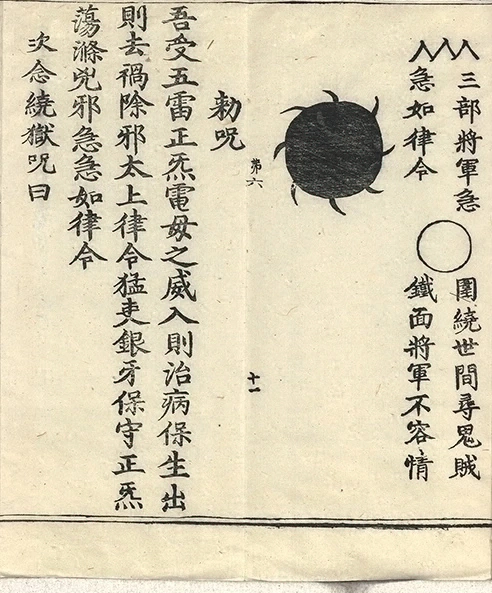 三部將軍急
急如律令
圍繞世間尋鬼賊
鐵面將軍不容情
第六
十一
勅咒
吾受五雷正炁電母之威入則治病保生出
則去禍除邪太上律令猛吏銀牙保守正炁
蕩滌兇邪急急如律令
次念繞獄咒曰